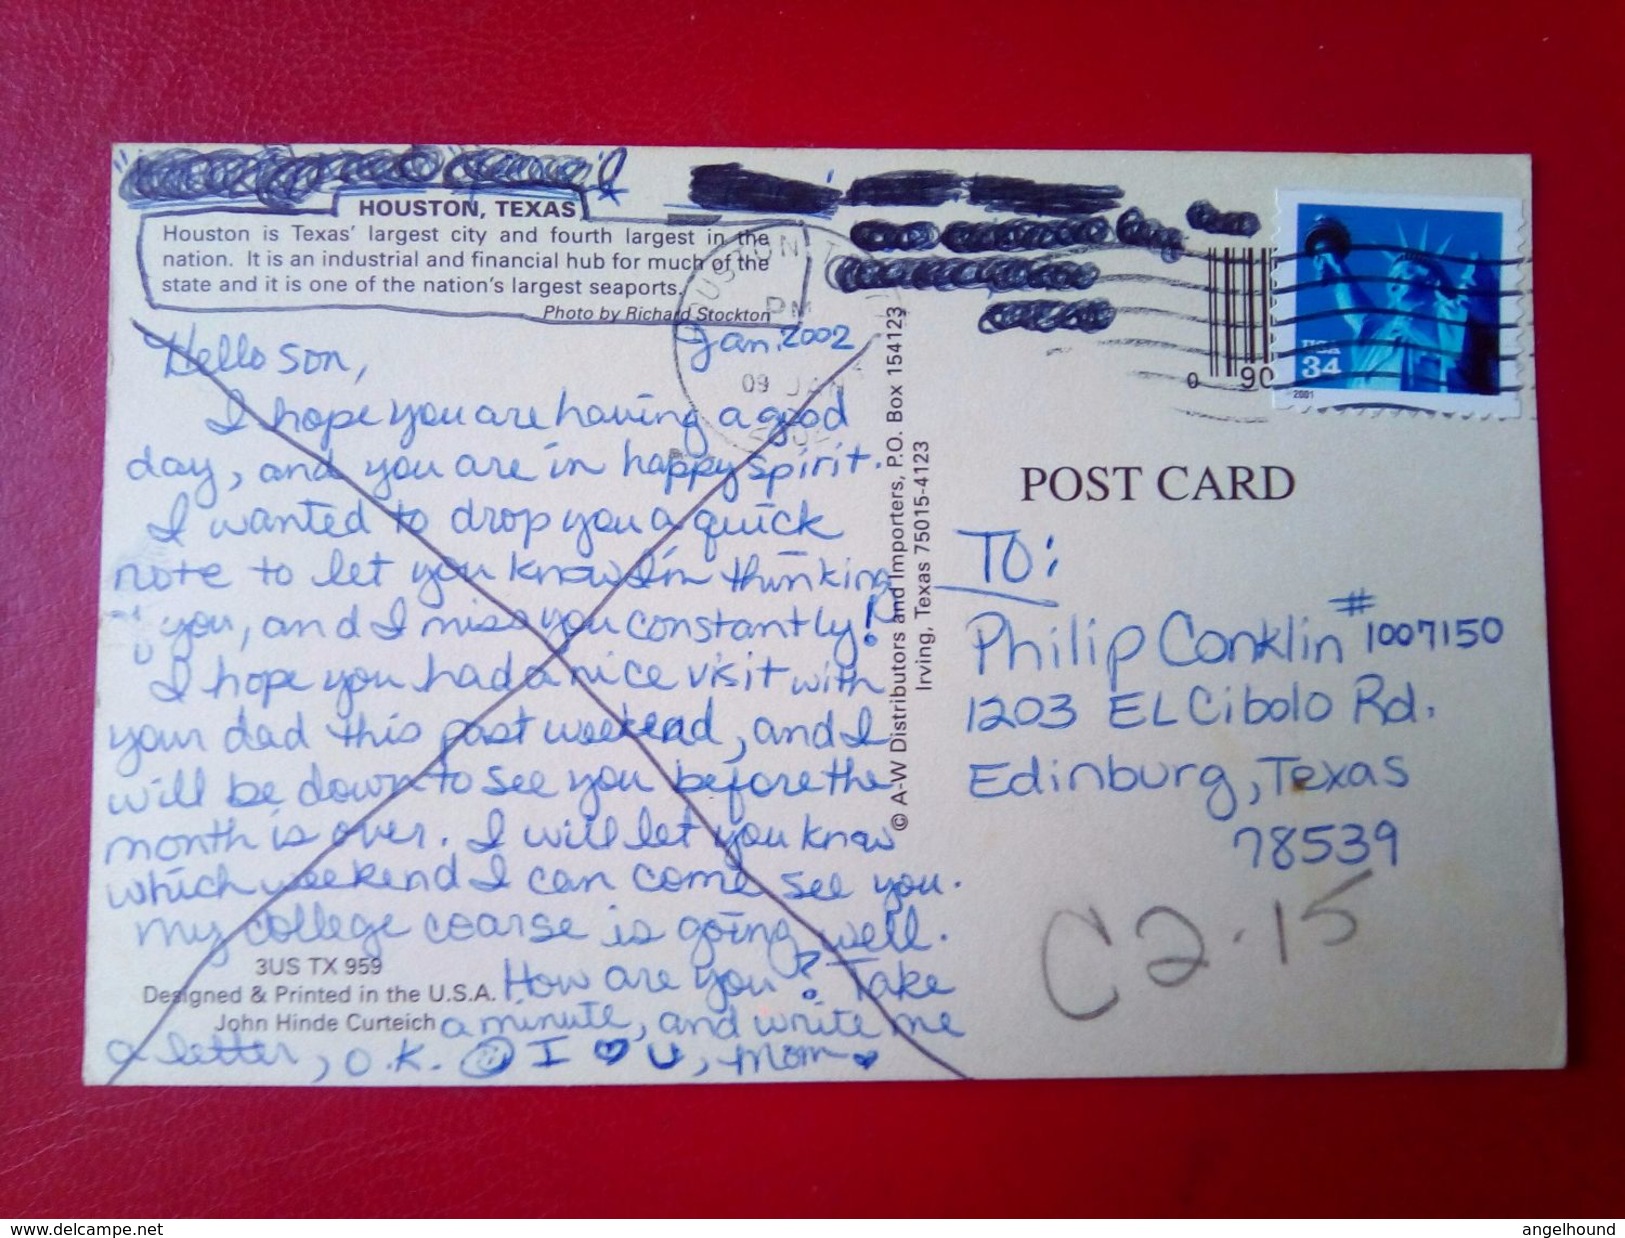 HOUSTON, TEXAS
Houston is Texas' largest city and fourth largest in the
nation. It is an industrial and financial hub for much of the
state and it is one of the nation's largest seaports.
Photo by Richard Stockton
Jan. 2002
Hello son,
I hope you are having a good
day, and you are in happy spirit.
I wanted to drop you a quick
note to let you know I'm thinking
of you, and I miss you constantly!
I hope you had a nice visit with
your dad this past weekend, and I
will be down to see you before the
month is over. I will let you know
which weekend I can come see you.
My college coarse is going well.
3US TX 959
Designed & Printed in the U.S.A.
John Hinde Curteich
How are you? Take
a minute, and write me
a letter, o.k. ☺ I ♥ U, Mom ♥
© A-W Distributors and Importers, P.O. Box 154123
Irving, Texas 75015-4123
PM
09 JAN
0 90
USA
34
2001
POST CARD
TO:
Philip Conklin #1007150
1203 EL Cibolo Rd.
Edinburg, Texas
78539
C2.15
www.delcampe.net
angelhound